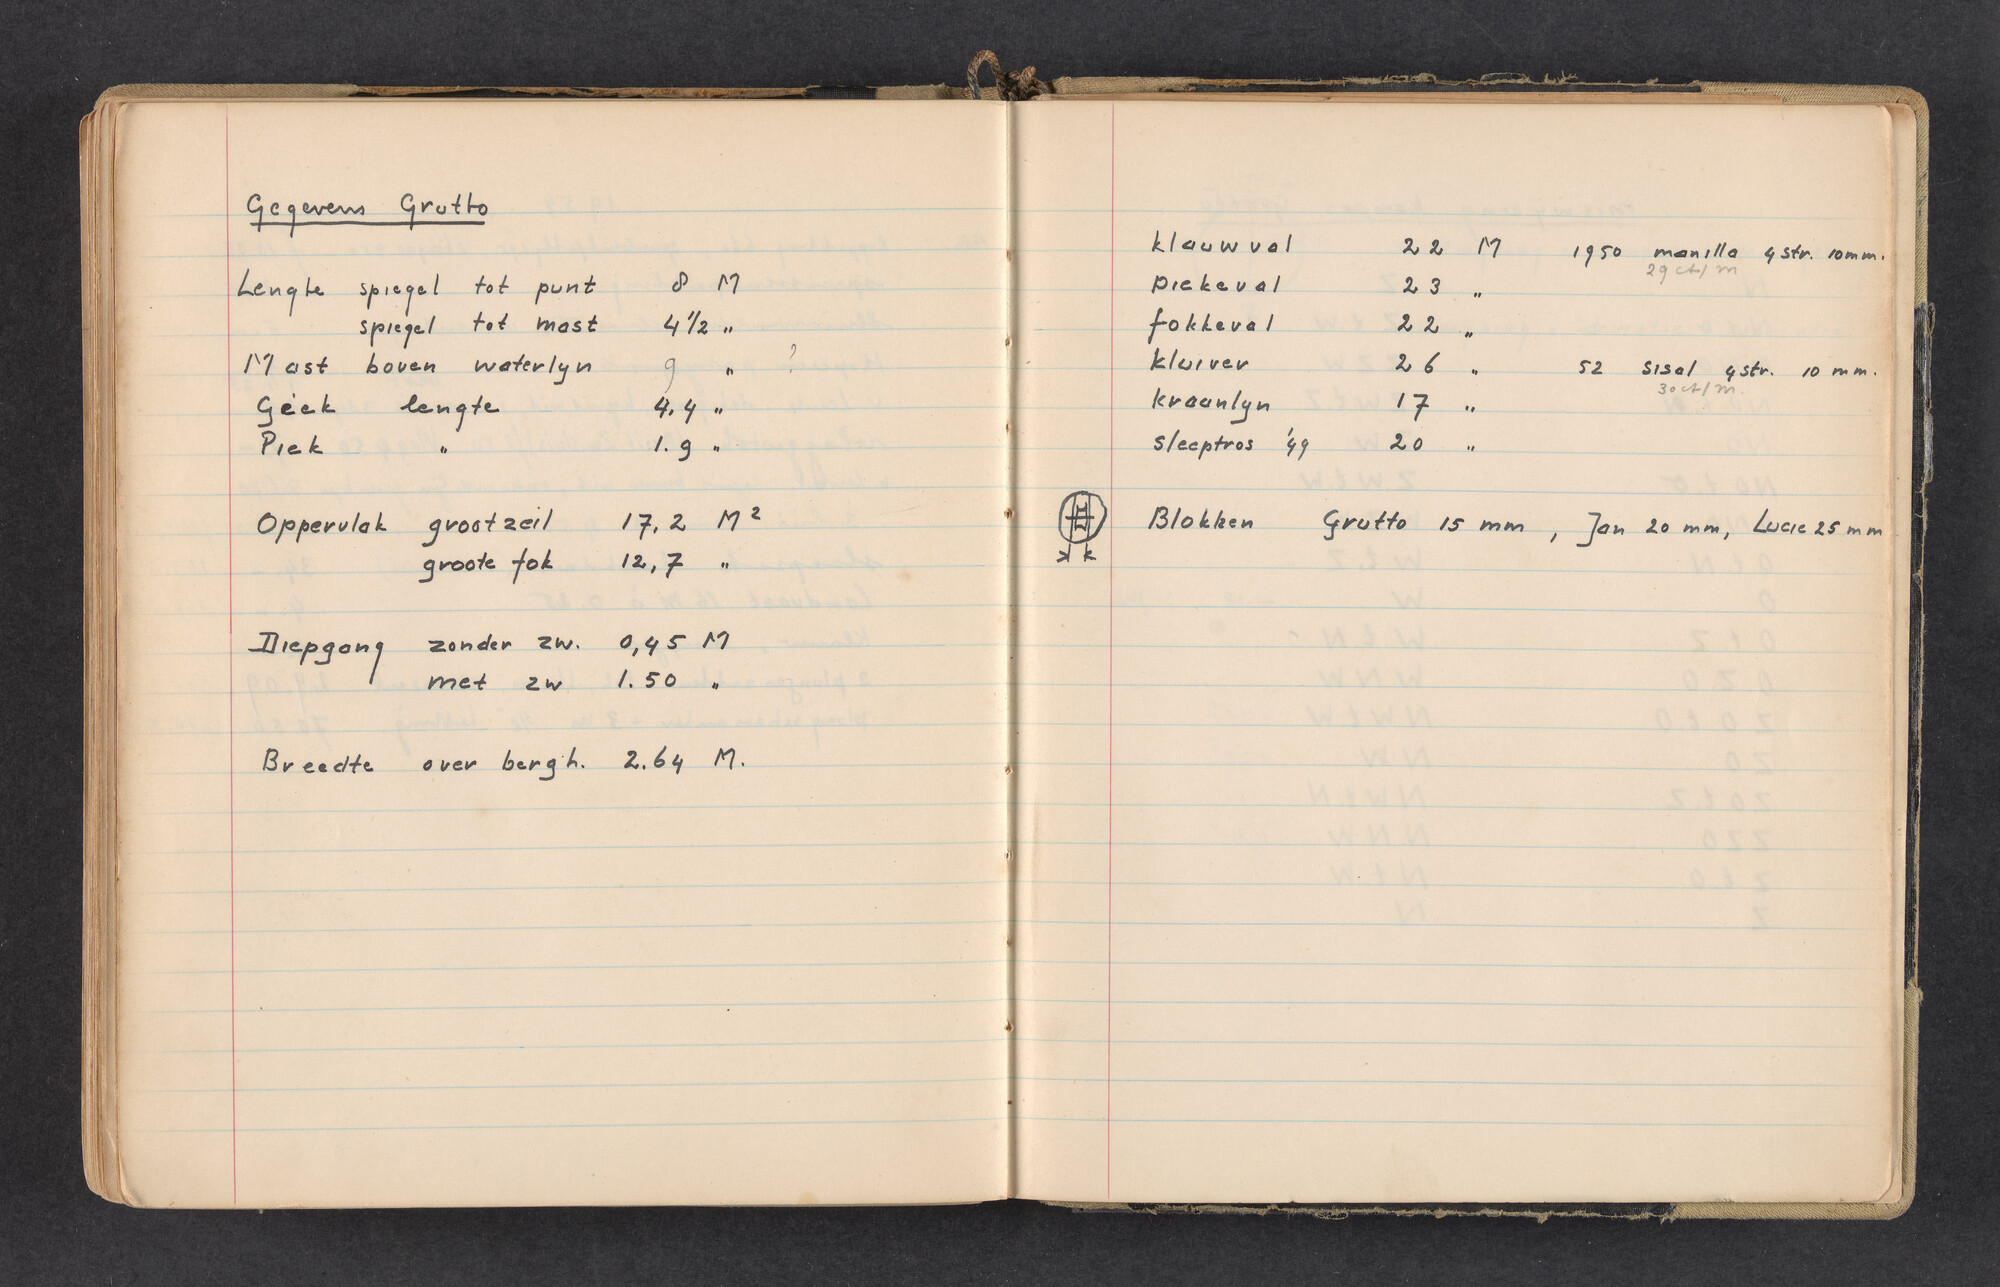 Gegevens Grutto
Lengte spiegel tot punt 8 M
spiegel tot mast 4 1/2 "
Mast boven waterlyn 9 " ?
Géék lengte 4,4 "
Piek " 1.9 "
Oppervlak grootzeil 17,2 M²
groote fok 12,7 "
Diepgang zonder zw. 0,45 M
met zw 1.50 "
Breedte over bergh. 2.64 M.
klauwval 22 M 1950 manilla 4 str. 10 mm.
29 ct/m
piekeval 23 "
fokkeval 22 "
kluiver 26 " 52 sisal 4 str. 10 mm.
30 ct/m.
kraanlyn 17 "
sleeptros '49 20 "
Blokken Grutto 15 mm, Jan 20 mm, Lucie 25 mm